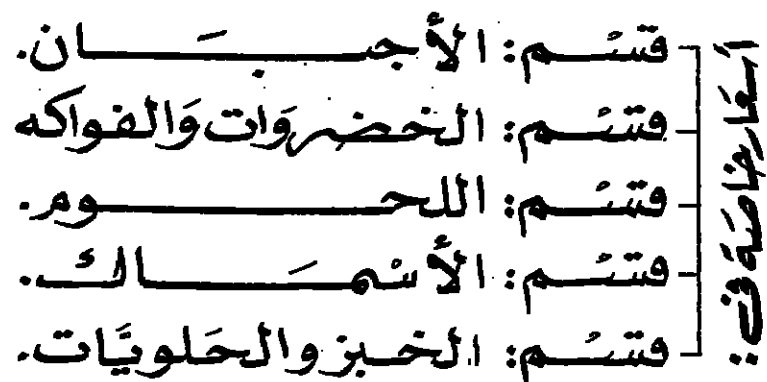 أسعار خاصة في:
قسم: الأجبان.
قسم: الخضروات والفواكه
قسم: اللحوم.
قسم: الأسماك.
قسم: الخبز والحلويات.